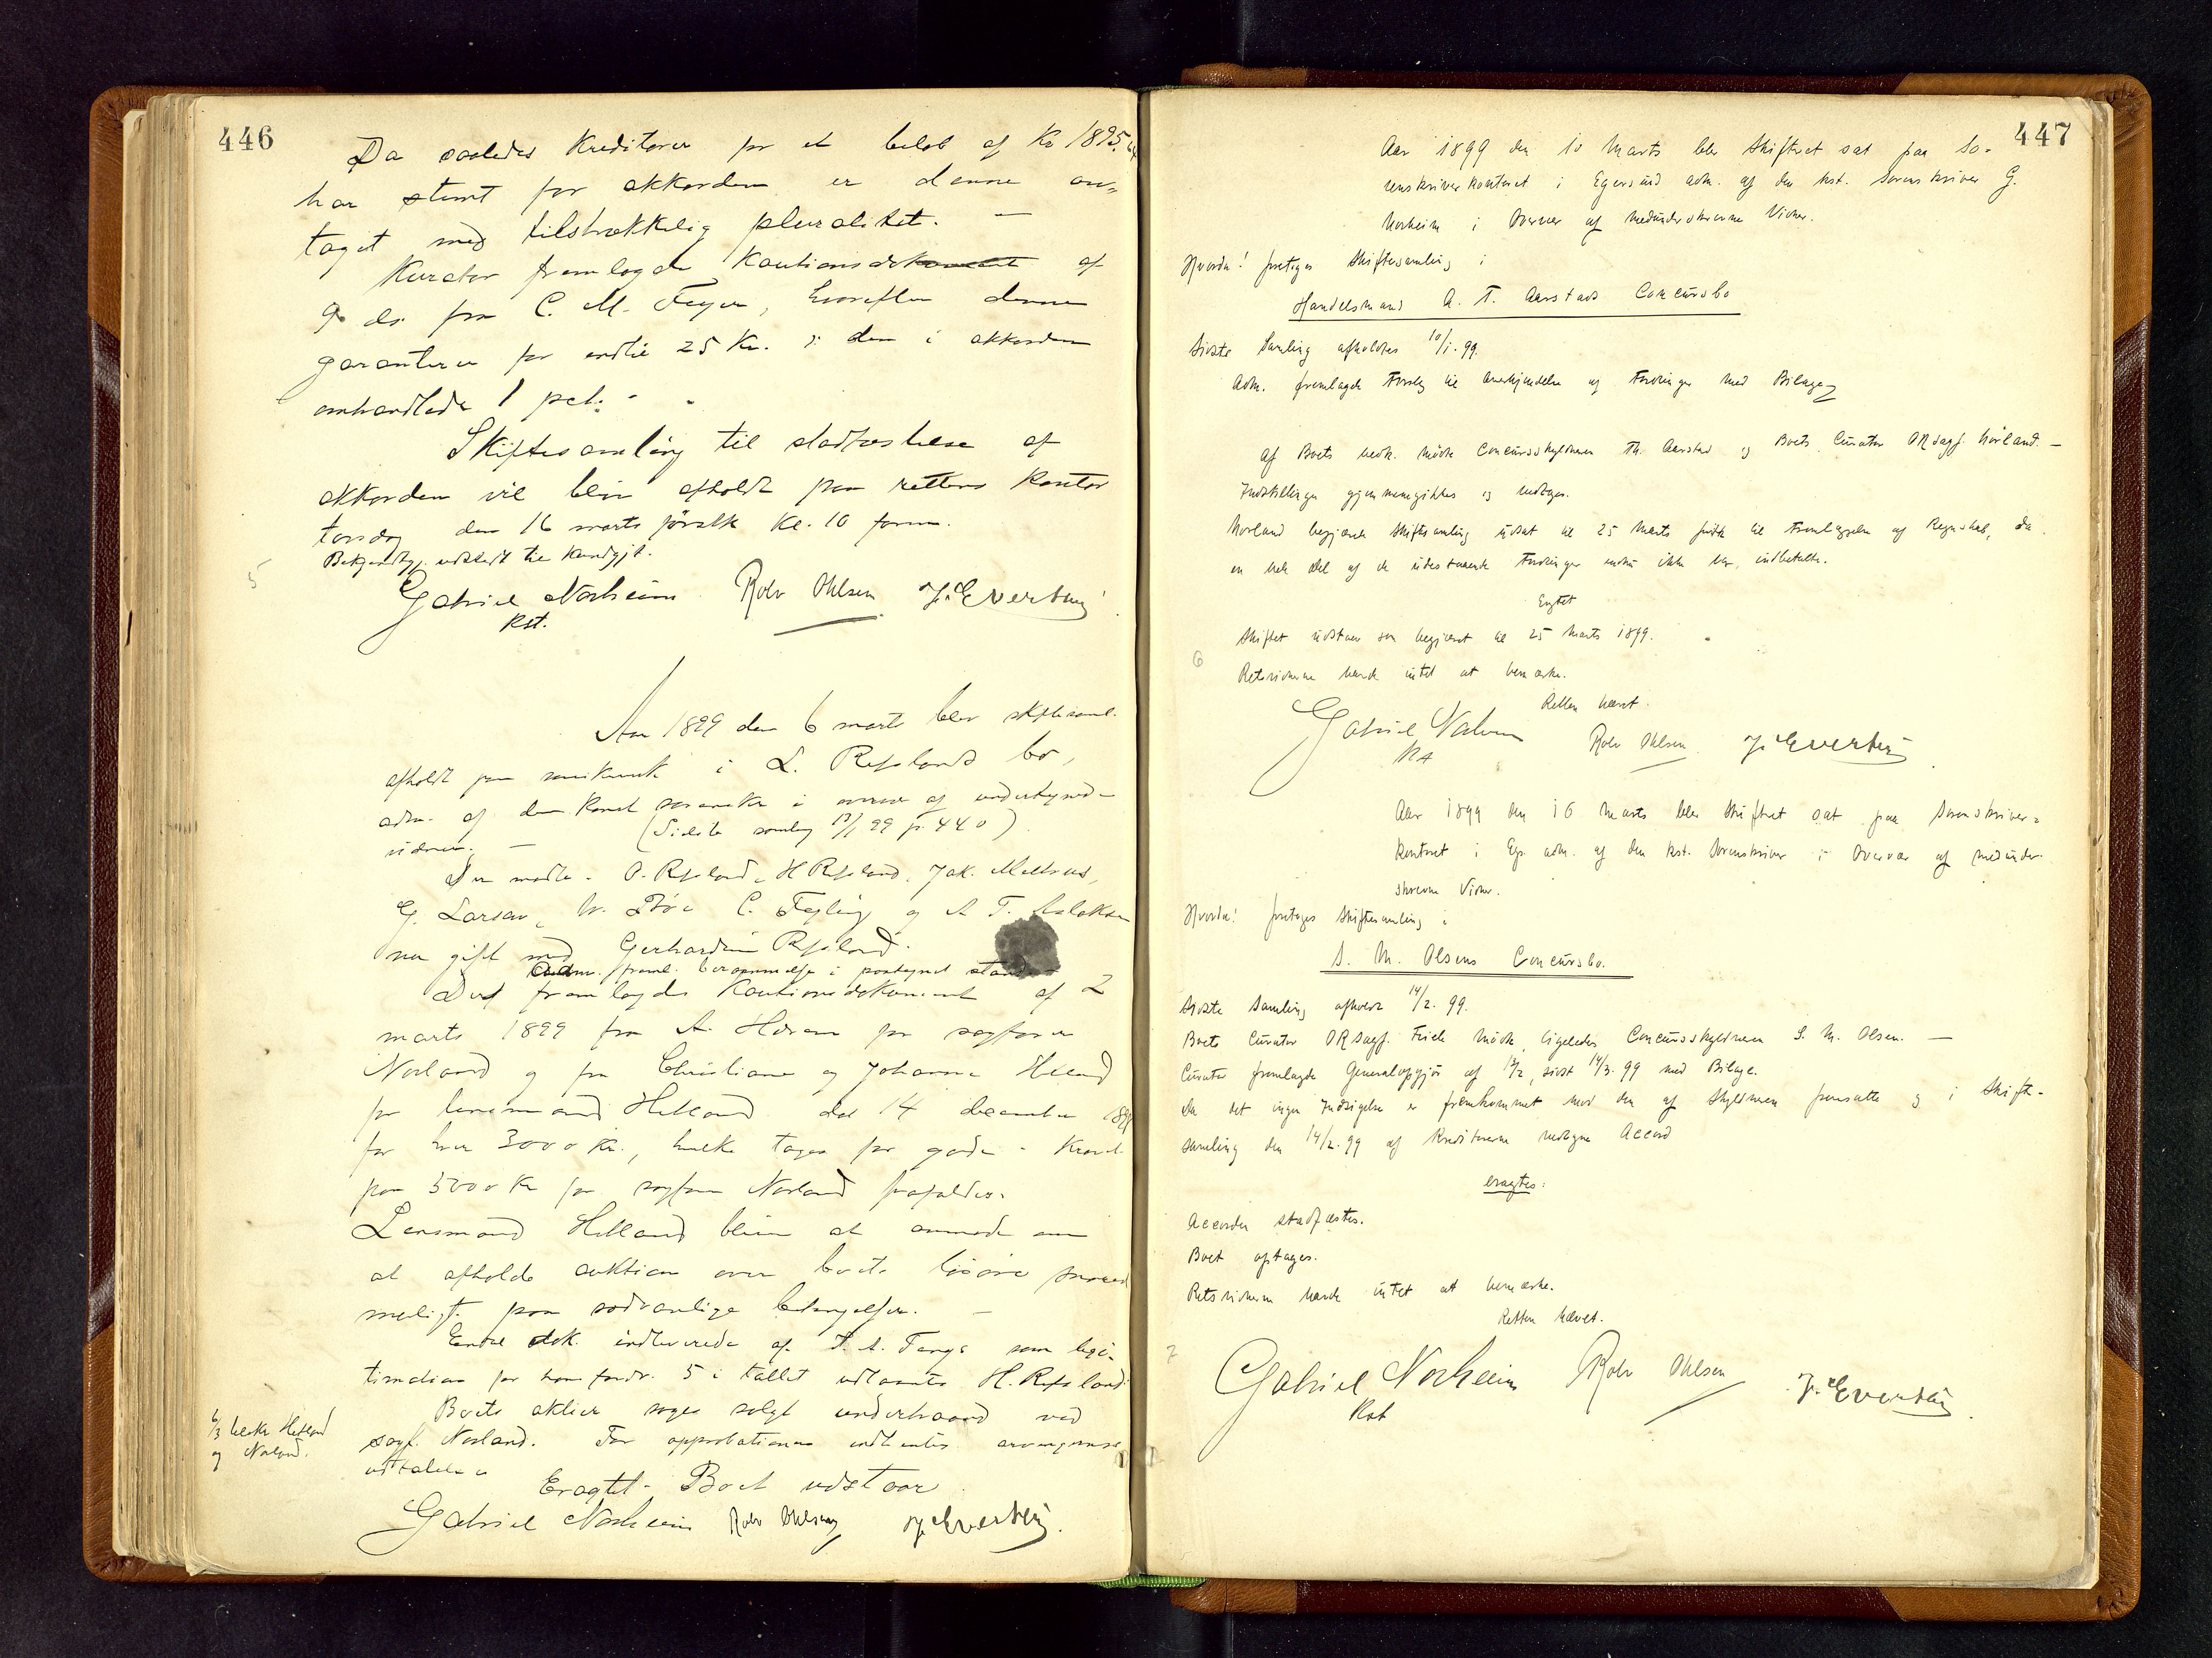 446
Da saaledes Kreditorer for et beløb af Kr 1895,
har stemt for akkorden er denne an-
taget med tilstrækkelig pluralitet. —
Kurator fremlagde Kautionsdokument af
9. ds. fra C. M. Feyer, hvorefter denne
garanterer for indtil 25 Kr. den i akkorden
omhandlede 1 pct. -
Skiftesamling til stadfæstelse af
akkorden vil blive afholdt paa rettens Kontor
torsdag den 16 marts førstk. Kl. 10 form.
Bekjendtgj. udstedt til Kundgjt.
5
Gabriel Norheim Rolv Ohlsen J. Evertsen
Kst.
Aar 1899 den 6 marts blev skiftesaml.
afholdt paa i L. Refslands bo,
adm. af den Konst. sorenskr. i overvær af undertegnede
vidner. — (Sidste samling 99 p. 440)
Der mødte. O. Refsland, H Refsland, Jak.
G. Larsen, C. og A. T.
nu gift med Gerhardine Refsland.
Adm. freml. berammelse i paategnet stand
Derpaa fremlagdes Kautionsdokument af 2
marts 1899 fra A. for sagfører
Norland og fra Christiane og Johanne Helland
for lensmand Helland dat 14 december 189
for hver 3000 Kr., hvilke toges for gode - Kravet
paa 5000 Kr for sagfører Norland frafaldes.
Lensmand Helland bliver at anmode om
at afholde auktion over boets løsøre snarest
muligt paa sædvanlige betingelser. —
Endel dok. indleverede af T. A. Tengs som legi-
timation for hans fordr. 5 i tallet udlaantes H. Refsland.
Boets aktier søges solgt underhaand ved
sagf. Norland. Før approbationen indhentes arvingernes
udtalelser
6/3 Helland
og Norland.
Eragtet - Boet udstaar
Gabriel Norheim Rolv Ohlsen J. Evertsen.
447
Aar 1899 den 10 Marts blev Skifteret sat paa So-
renskriverkontoret i Egersund adm. af den kst. Sorenskriver G.
Norheim i Overvær af medunderskrevne Vidner.
Hvorda! foretoges Skiftesamling i
Handelsmand A. T. Aarstads Concursbo
Sidste Samling afholdtes 10/1.99.
Adm. fremlagde Forslag til Anerkjendelse af Fordringer med Bilage
Af Boets vedk. mødte Concursskyldneren Th. Aarstad og Boets Curator ORsagf. Norland. —
Indstillingen gjennemgikkes og vedtoges.
Norland begjærede Skiftesamling udsat til 25 Marts førstk til Fremlæggelse af Regnskab, da
en hel Del af de udestaaende Fordringer endnu ikke var indbetalte.
Eragtet
Skiftet udstaar som begjæret til 25 Marts 1899.
6
Retsvidnerne havde intet at bemærke.
Retten hævet.
Gabriel Norheim Rolv Ohlsen J. Evertsen
Kst
Aar 1899 den 16 Marts blev Skifteret sat paa Sorenskriver-
kontoret i Egs. adm. af den kst. Sorenskriver i Overvær af medunder-
skrevne Vidner.
Hvorda! foretoges Skiftesamling i
S. M. Olsens Concursbo.
Sidste Samling afholdt 14/2. 99.
Boets Curator ORsagf. Friele mødte, ligeledes Concursskyldneren S. M. Olsen. —
Curator fremlagde Generalopgjør af 13/2, sidst 14/3. 99 med Bilage.
Da det ingen Indsigelse er fremkommet mod den af Skyldneren fremsatte og i Skifte-
samling den 14/2. 99 af Kreditorerne vedtagne Accord
eragtes:
Accorden stadfæstes.
Boet optages.
Retsvidnerne havde intet at bemærke.
Retten hævet.
7
Gabriel Norheim Rolv Ohlsen J. Evertsen
Kst